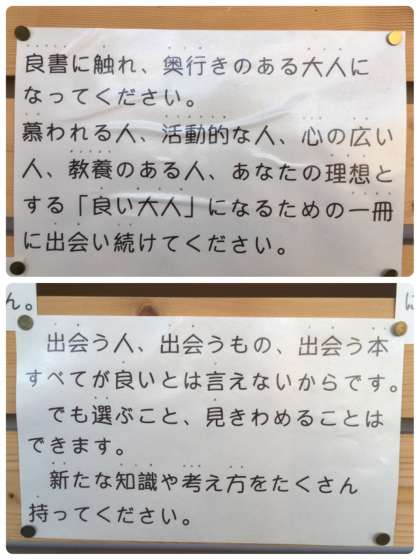 良書に触れ、奥行きのある大人に
なってください。
慕われる人、活動的な人、心の広い
人、教養のある人、あなたの理想と
する「良い大人」になるための一冊
に出会い続けてください。
ん。
に
出会う人、出会うもの、出会う本
すべてが良いとは言えないからです。
でも選ぶこと、見きわめることは
できます。
新たな知識や考え方をたくさん
持ってください。